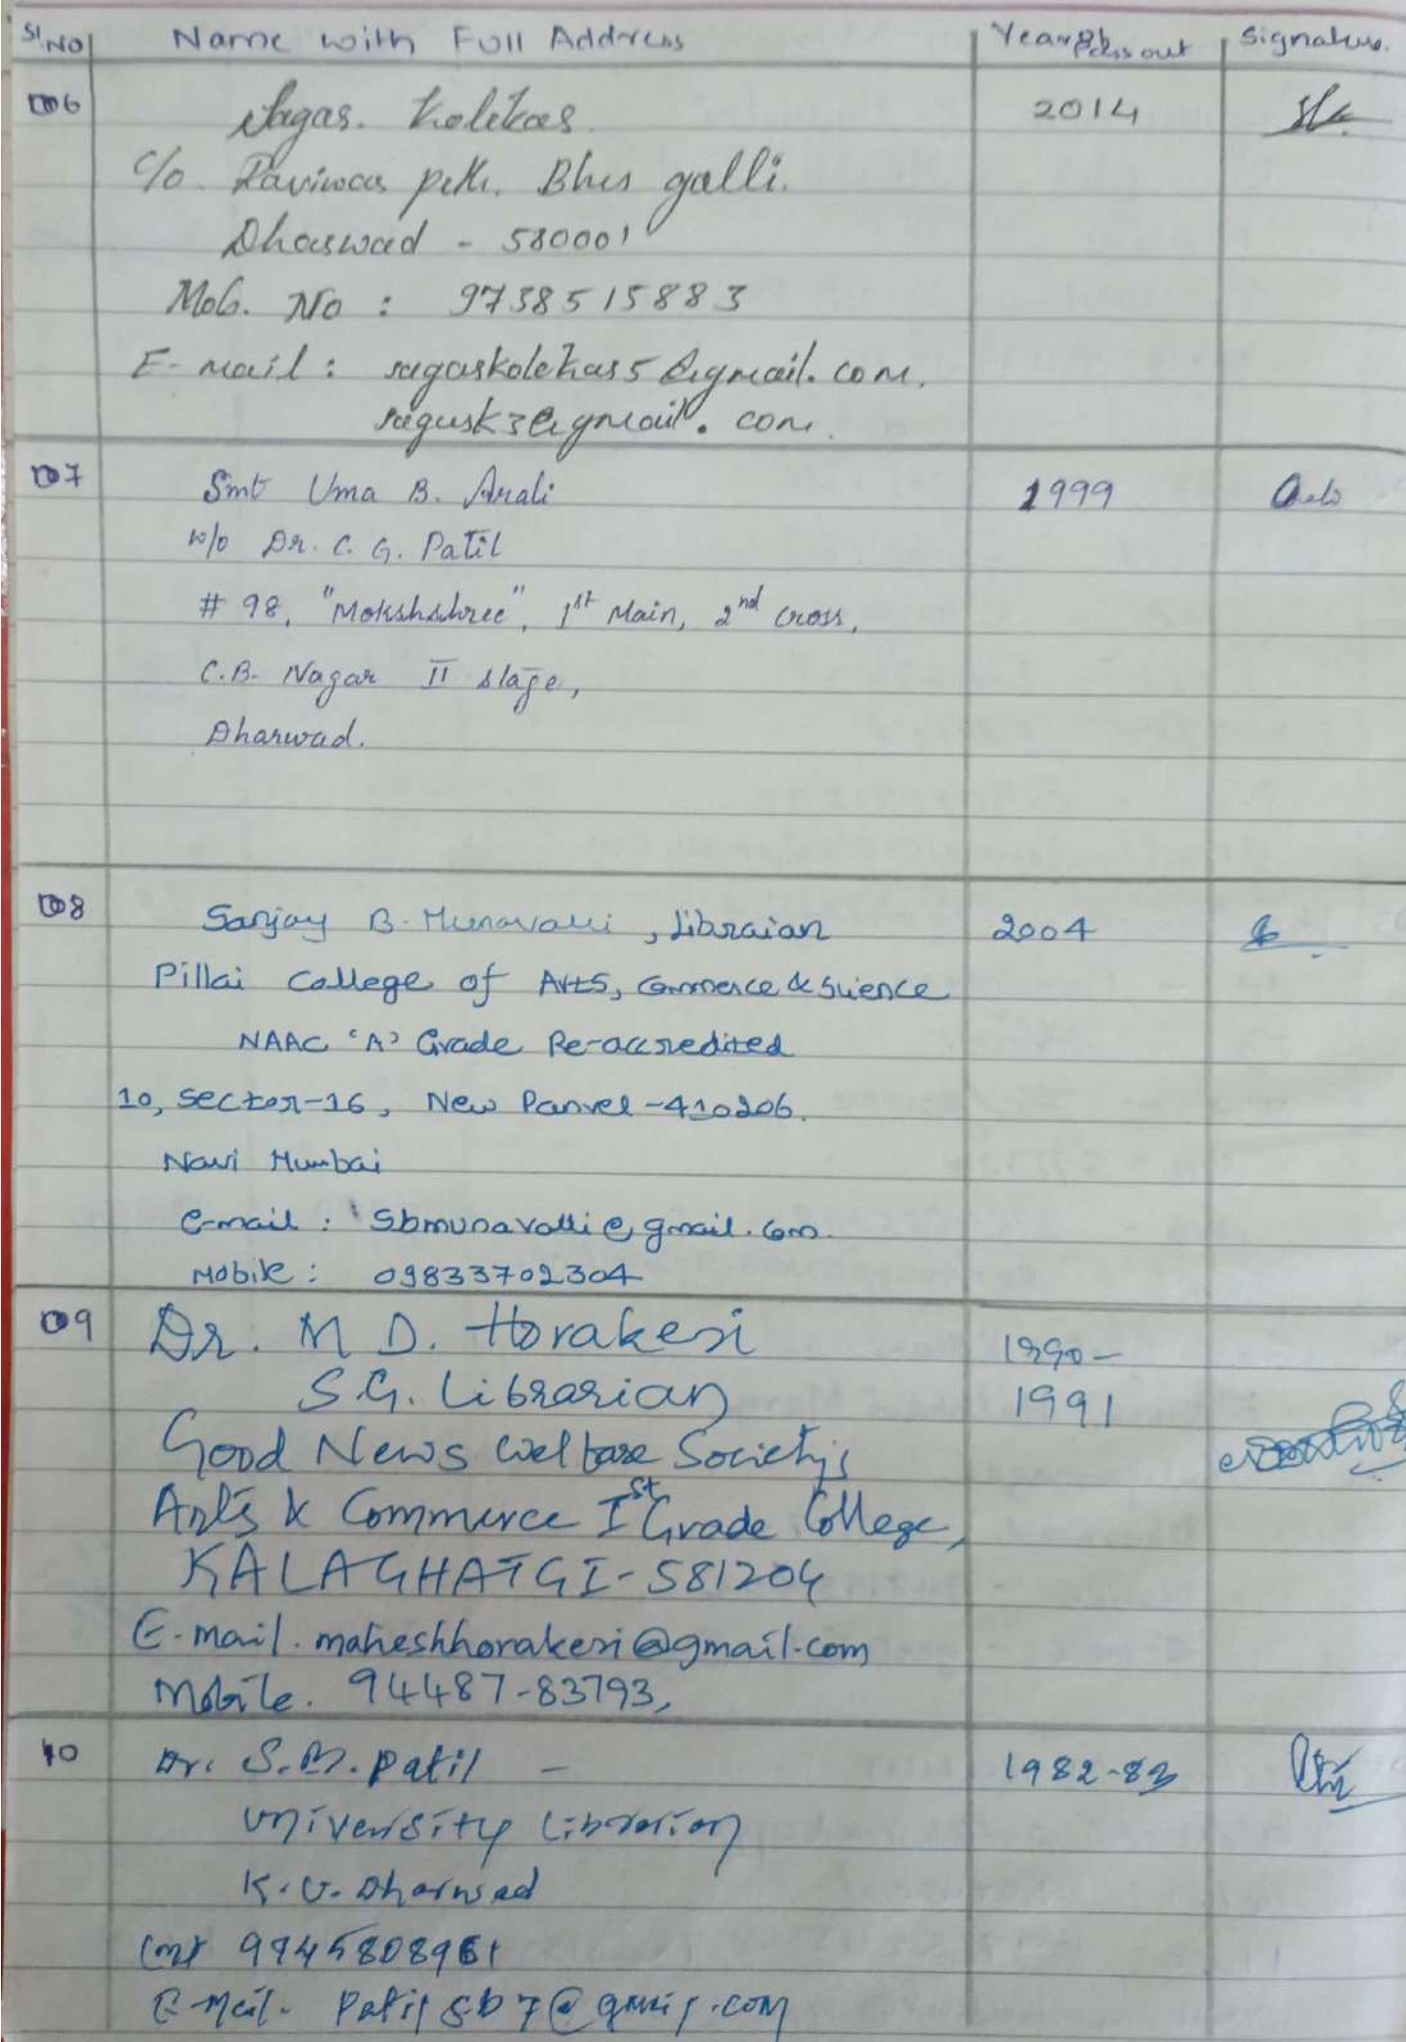 Sl.No Name with Full Address Year of Pass out Signature.
006 Sagar. Kolekar. 2014
C/o. Raviwar peth. Bhus galli.
Dharwad - 580001
Mob. No : 9738515883
E-mail : sagarkolekar5@gmail.com.
sagark3@gmail.com.
007 Smt Uma B. Arali 1999
w/o Dr. C. G. Patil
# 98, "Mokshshree", 1st Main, 2nd cross,
C.B. Nagar II stage,
Dharwad.
008 Sanjay B. Munavalli, Libraian 2004
Pillai College of Arts, Commerce & Science
NAAC 'A' Grade Re-accredited
10, sector-16, New Panvel-410206.
Navi Mumbai
e-mail : sbmunavalli@gmail.com.
Mobile : 09833702304
009 Dr. M D. Horakeri 1990-
S.G. Librarian 1991
Good News Welfare Society's
Arts & Commerce Ist Grade College,
KALAGHATGI-581204
E-mail. maheshhorakeri@gmail.com
Mobile. 94487-83793,
10 Dr. S.B. Patil - 1982-83
University Librarian
K.U. Dharwad
E-mail- patilsb7@gmail.com